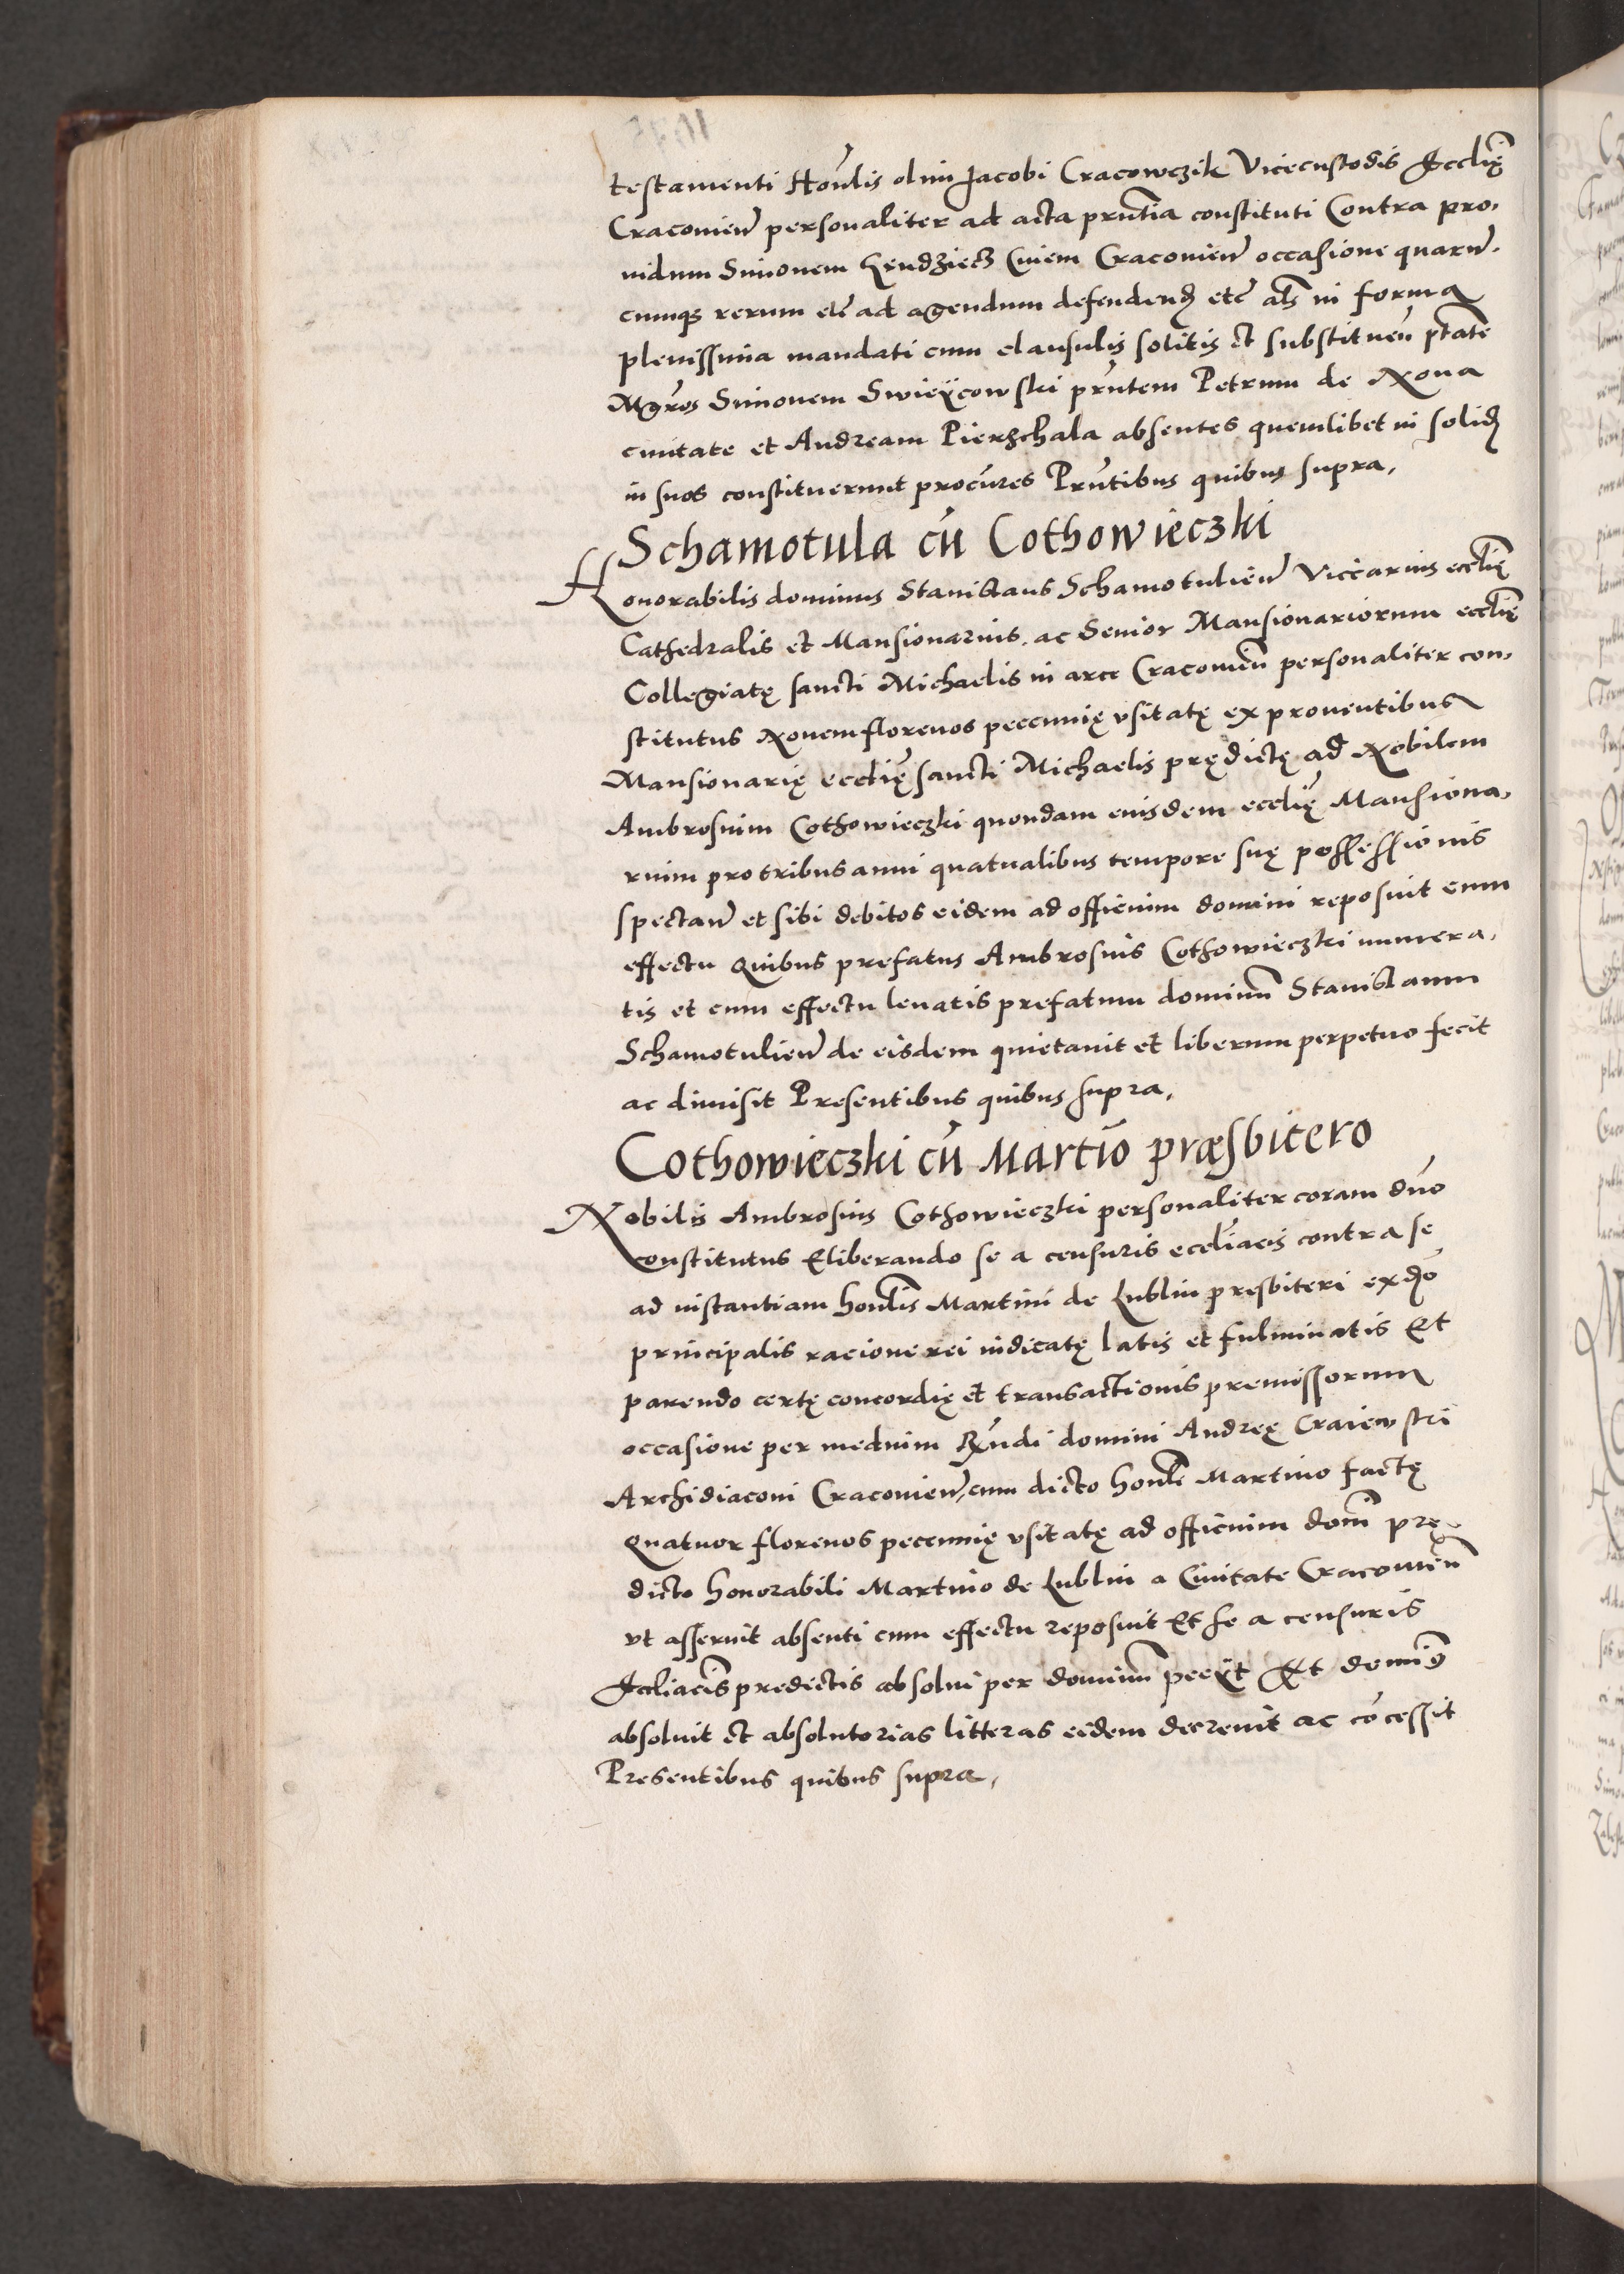 testamenti Honlis olim Jacobi Cracowczik Vicecustodis Ecclię
Cracovien personaliter ad acta prntia constituti Contra pro,
uidum Simonem Hendziecz Ciuem Cracovien occasione quarun,
cumqz rerum etc ad agendum defendend etc als in forma
plenissima mandati cum clausulis solitis et substituen ptate
Mgros Simonem Swieÿcowski prntem Petrum de Noua
ciuitate et Andream Pierzchala absentes quemlibet in solid
in suos constituerunt procures Prntibus quibus supra,
Schamotula cu Cothowieczki
Honorabilis dominus Stanislaus Schamotulien Viccarius ecclię
Cathedralis et Mansionarius, ac Senior Mansionariorum ecclię
Collegiatę sancti Michaelis in arce Cracovien personaliter con,
stitutus Nouem florenos peccunię vsitatę ex prouentibus
Mansionarię ecclię sancti Michaelis prędictę ad Nobilem
Ambrosium Cothowieczki quondam eiusdem ecclię Mansiona,
rium pro tribus anni quatualibus tempore suę possessionis
spectan et sibi debitos eidem ad officium domini reposuit cum
effectu Quibus prefatus Ambrosius Cothowieczki numera,
tis et cum effectu leuatis prefatum dominum Stanislaum
Schamotulien de eisdem quietauit et liberum perpetuo fecit
ac dimisit Presentibus quibus supra,
Cothowieczki cu Martio præsbitero
Nobilis Ambrosius Cothowieczki personaliter coram dno
constitutus Eliberando se a censuris eccliacis contra se
ad instantiam honlis Martini de Lublin pręsbiteri ex do
principalis racione rei iudicatę latis et fulminatis Et
parendo certę concordię et transactionis premissorum
occasione per medium Rndi domini Andreę Craiewski
Archidiaconi Cracovien, cum dicto honli Martino factę
Quatuor florenos peccunię vsitatę ad officium domi prę,
dicto honorabili Martino de Lublin a Ciuitate Cracovien
vt asseruit absenti cum effectu reposuit Et se a censuris
Eccliacis predictis absolui per dominum peciit Et dominus
absoluit et absolutorias litteras eidem decreuit ac cocessit
Presentibus quibus supra,